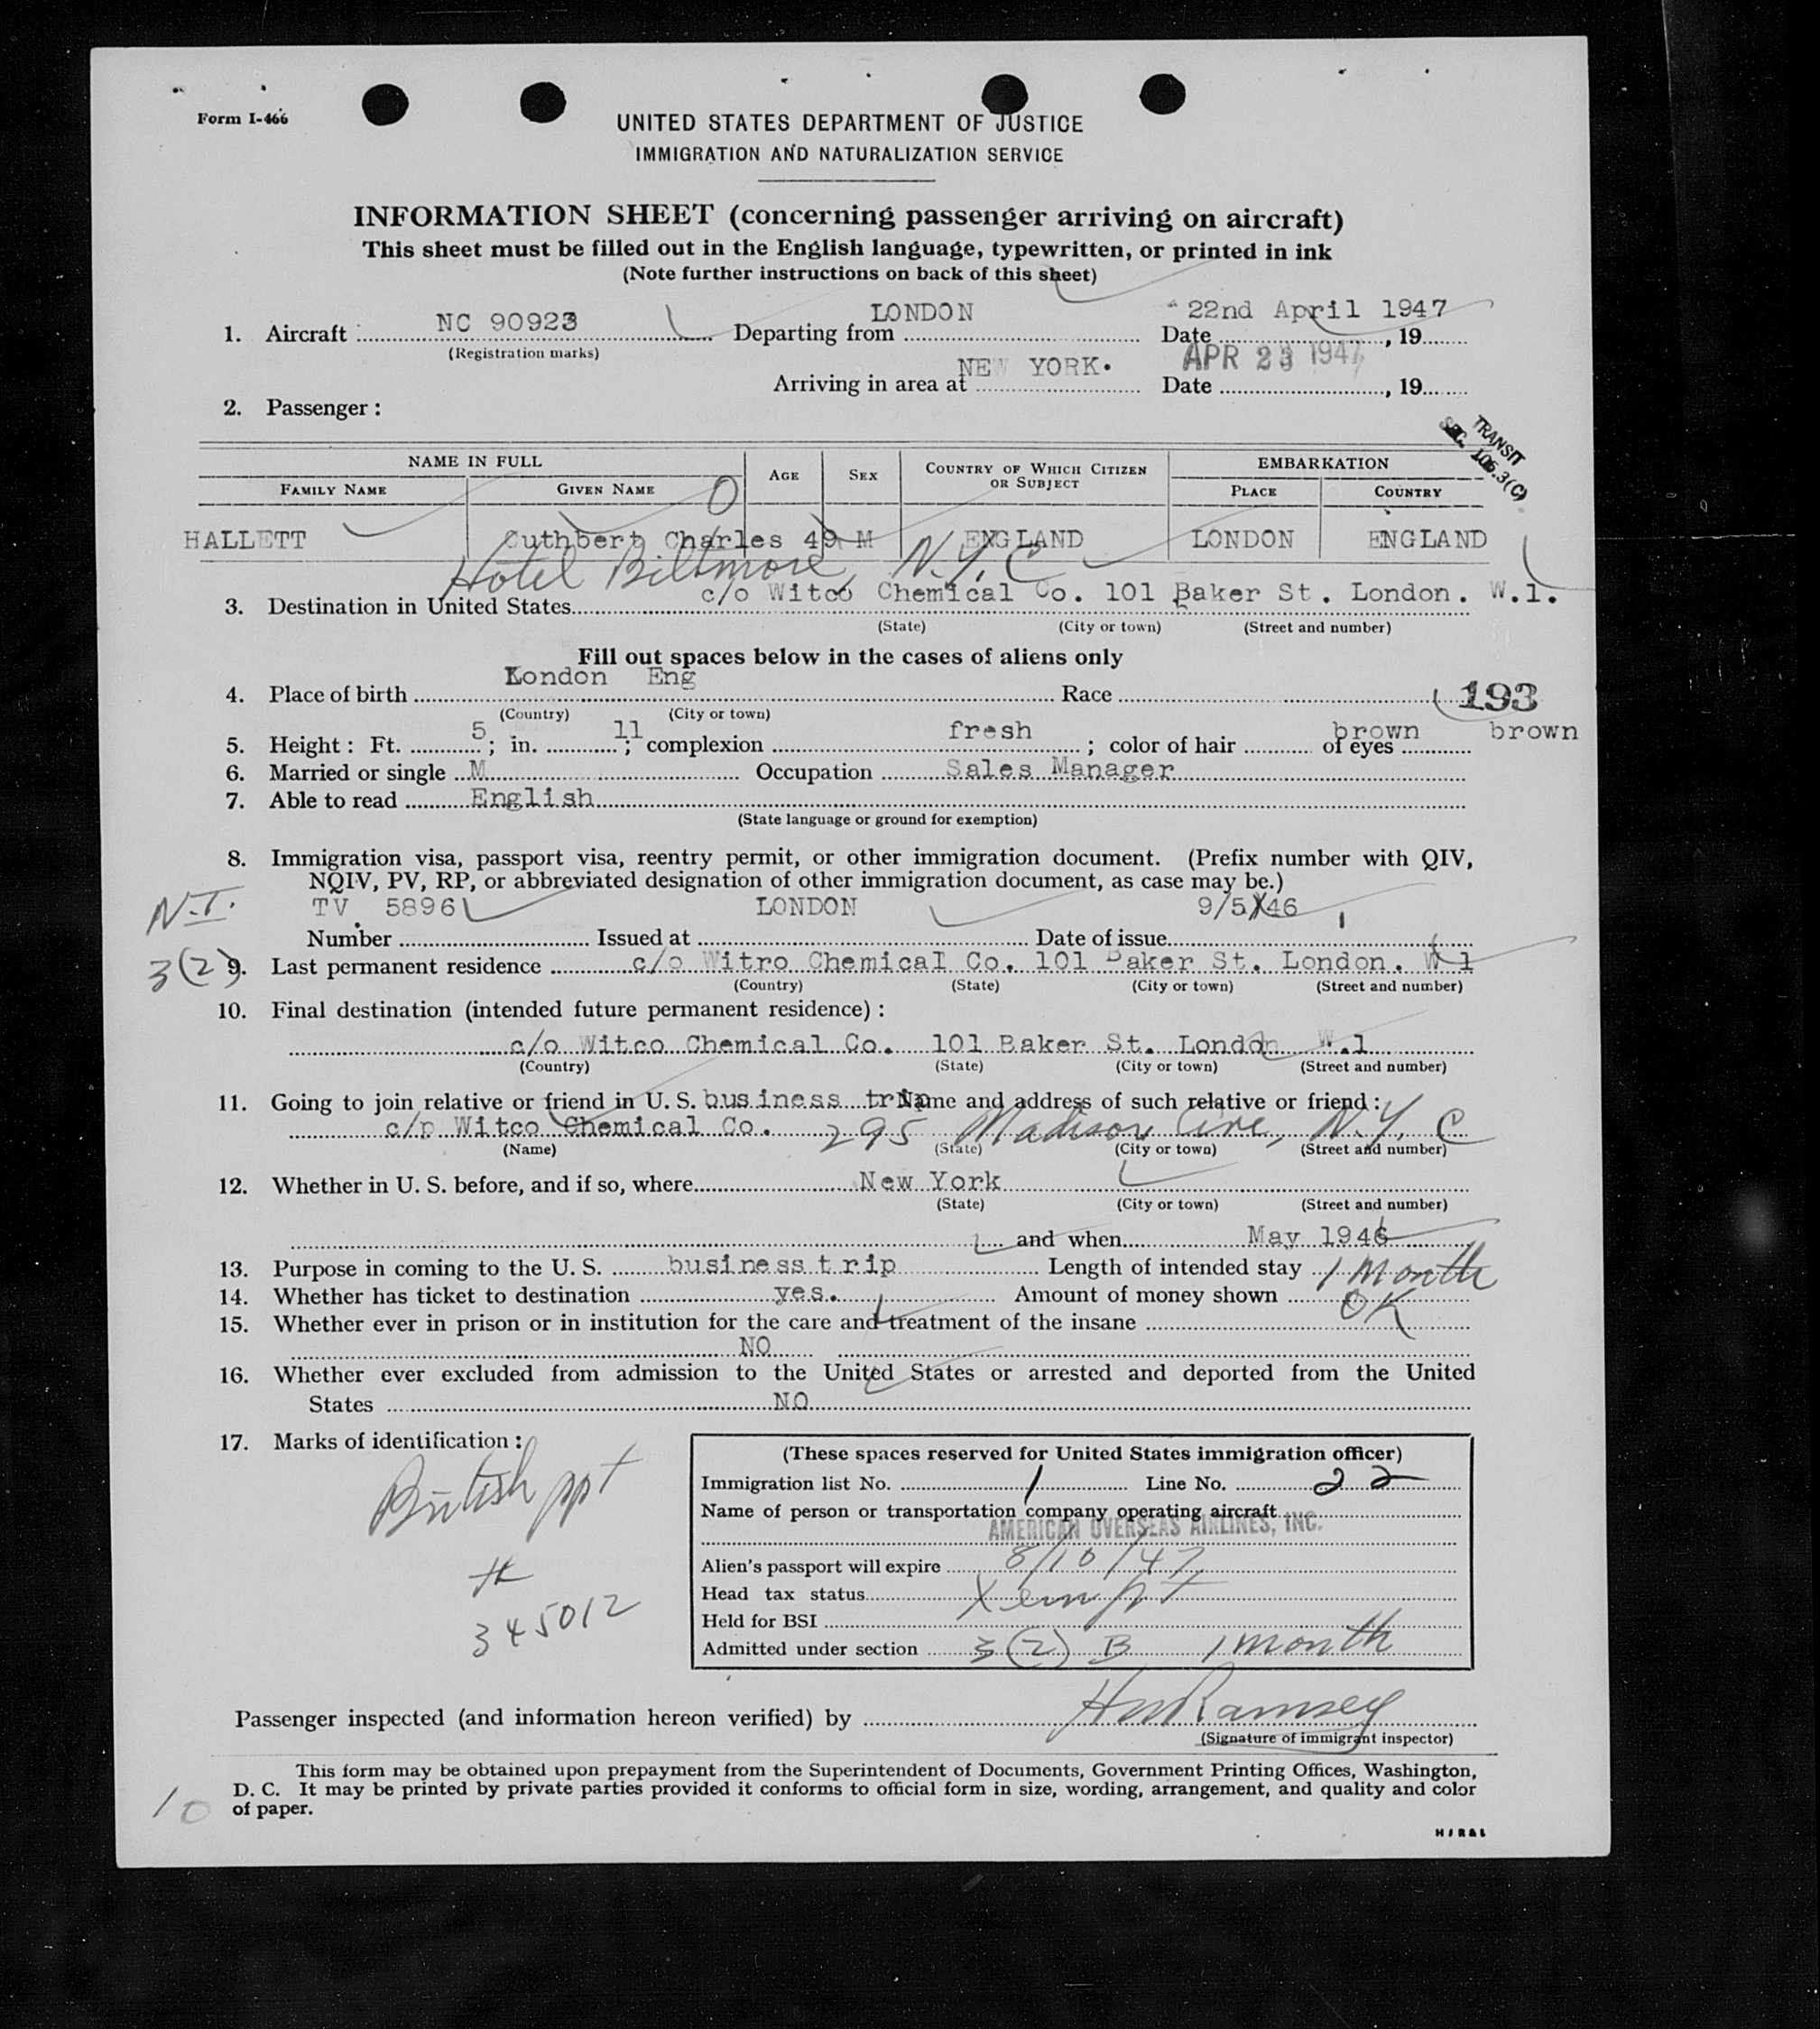 Form I-466
UNITED STATES DEPARTMENT OF JUSTICE
IMMIGRATION AND NATURALIZATION SERVICE
INFORMATION SHEET (concerning passenger arriving on aircraft)
This sheet must be filled out in the English language, typewritten, or printed in ink
(Note further instructions on back of this sheet)
1. Aircraft NC 90923 Departing from LONDON Date 22nd April 1947, 19
(Registration marks)
Arriving in area at NEW YORK. Date APR 23 1947, 19
2. Passenger:
TRANSIT
SEC. 106.3(C)
NAME IN FULL AGE SEX COUNTRY OF WHICH CITIZEN OR SUBJECT EMBARKATION
FAMILY NAME GIVEN NAME PLACE COUNTRY
HALLETT Cuthbert Charles 49 M ENGLAND LONDON ENGLAND
Hotel Biltmore, N.Y.C
3. Destination in United States c/o Witco Chemical Co. 101 Baker St. London. W.1.
(State) (City or town) (Street and number)
Fill out spaces below in the cases of aliens only
4. Place of birth London Eng Race 193
(Country) (City or town)
5. Height: Ft. 5; in. 11; complexion fresh; color of hair brown of eyes brown
6. Married or single M Occupation Sales Manager
7. Able to read English
(State language or ground for exemption)
8. Immigration visa, passport visa, reentry permit, or other immigration document. (Prefix number with QIV,
NQIV, PV, RP, or abbreviated designation of other immigration document, as case may be.)
N.I. TV. 5896 LONDON 9/5/46
Number Issued at Date of issue
3(2) 9. Last permanent residence c/o Witro Chemical Co. 101 Baker St. London. W 1
(Country) (State) (City or town) (Street and number)
10. Final destination (intended future permanent residence):
c/o Witco Chemical Co. 101 Baker St. London W.1
(Country) (State) (City or town) (Street and number)
11. Going to join relative or friend in U. S. business trip Name and address of such relative or friend:
c/p Witco Chemical Co. 295 Madison Ave, N.Y. C
(Name) (State) (City or town) (Street and number)
12. Whether in U. S. before, and if so, where New York
(State) (City or town) (Street and number)
and when May 1946
13. Purpose in coming to the U. S. business trip Length of intended stay 1 Month
14. Whether has ticket to destination yes. Amount of money shown OK
15. Whether ever in prison or in institution for the care and treatment of the insane
NO
16. Whether ever excluded from admission to the United States or arrested and deported from the United
States NO
17. Marks of identification:
British ppt
#
345012
(These spaces reserved for United States immigration officer)
Immigration list No. 1 Line No. 22
Name of person or transportation company operating aircraft
AMERICAN OVERSEAS AIRLINES, INC.
Alien's passport will expire 8/10/47
Head tax status Xempt
Held for BSI
Admitted under section 3(2) B 1 month
Passenger inspected (and information hereon verified) by HM Ramsey
(Signature of immigrant inspector)
This form may be obtained upon prepayment from the Superintendent of Documents, Government Printing Offices, Washington,
D. C. It may be printed by private parties provided it conforms to official form in size, wording, arrangement, and quality and color
of paper.
10